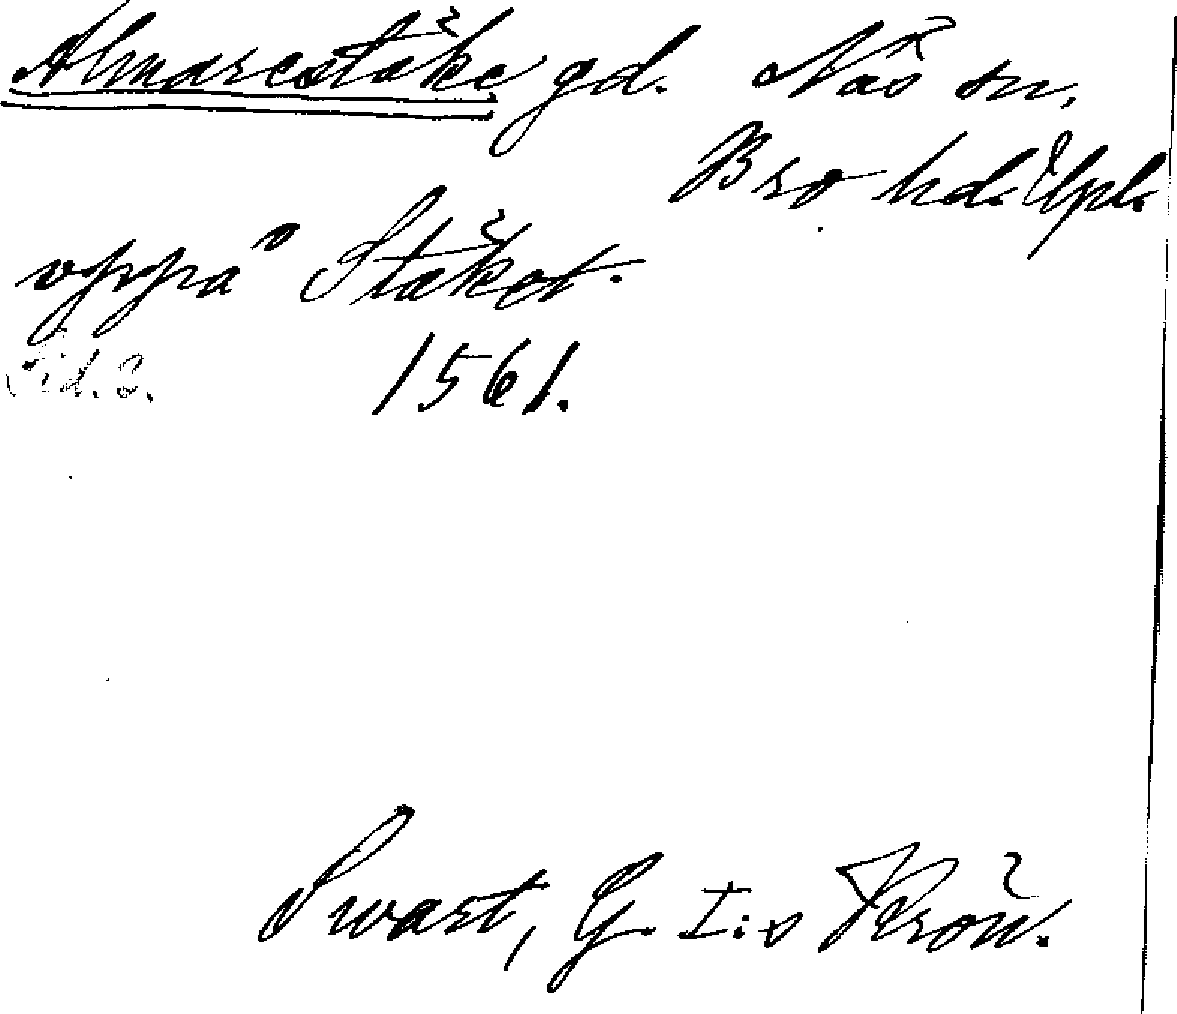 Almarestäke gd. Näs sn,
Bro hd. Upl.
vppå Stäket.
Sid. 3. 1561.
Swart, G. I:s Krön.